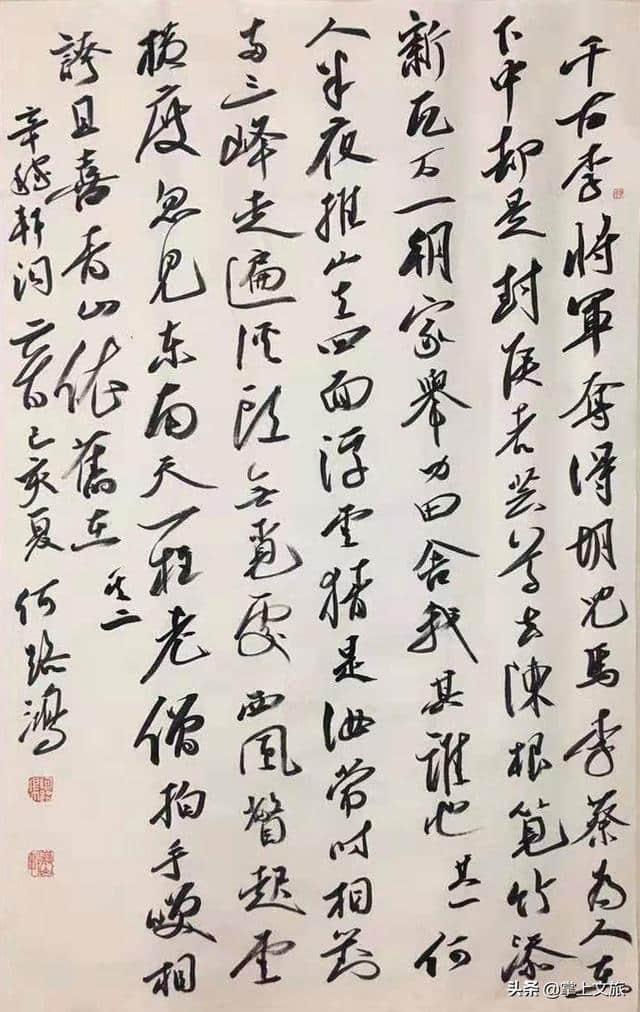 千古李將軍奪得胡兒馬李蔡為人在
下中却是封侯者芸草去陳根筧竹添
新瓦万一朝家舉功田舍我其誰也 其一 何
人半夜推山去四面浮雲猜是汝常時相對
兩三峰走遍溪頭無覓處西風瞥起雲
橫度忽見東南天一柱老僧拍手咲相
誇且喜青山依舊在 其二
辛稼軒詞二首己亥夏何路鴻
头条@掌上文旅